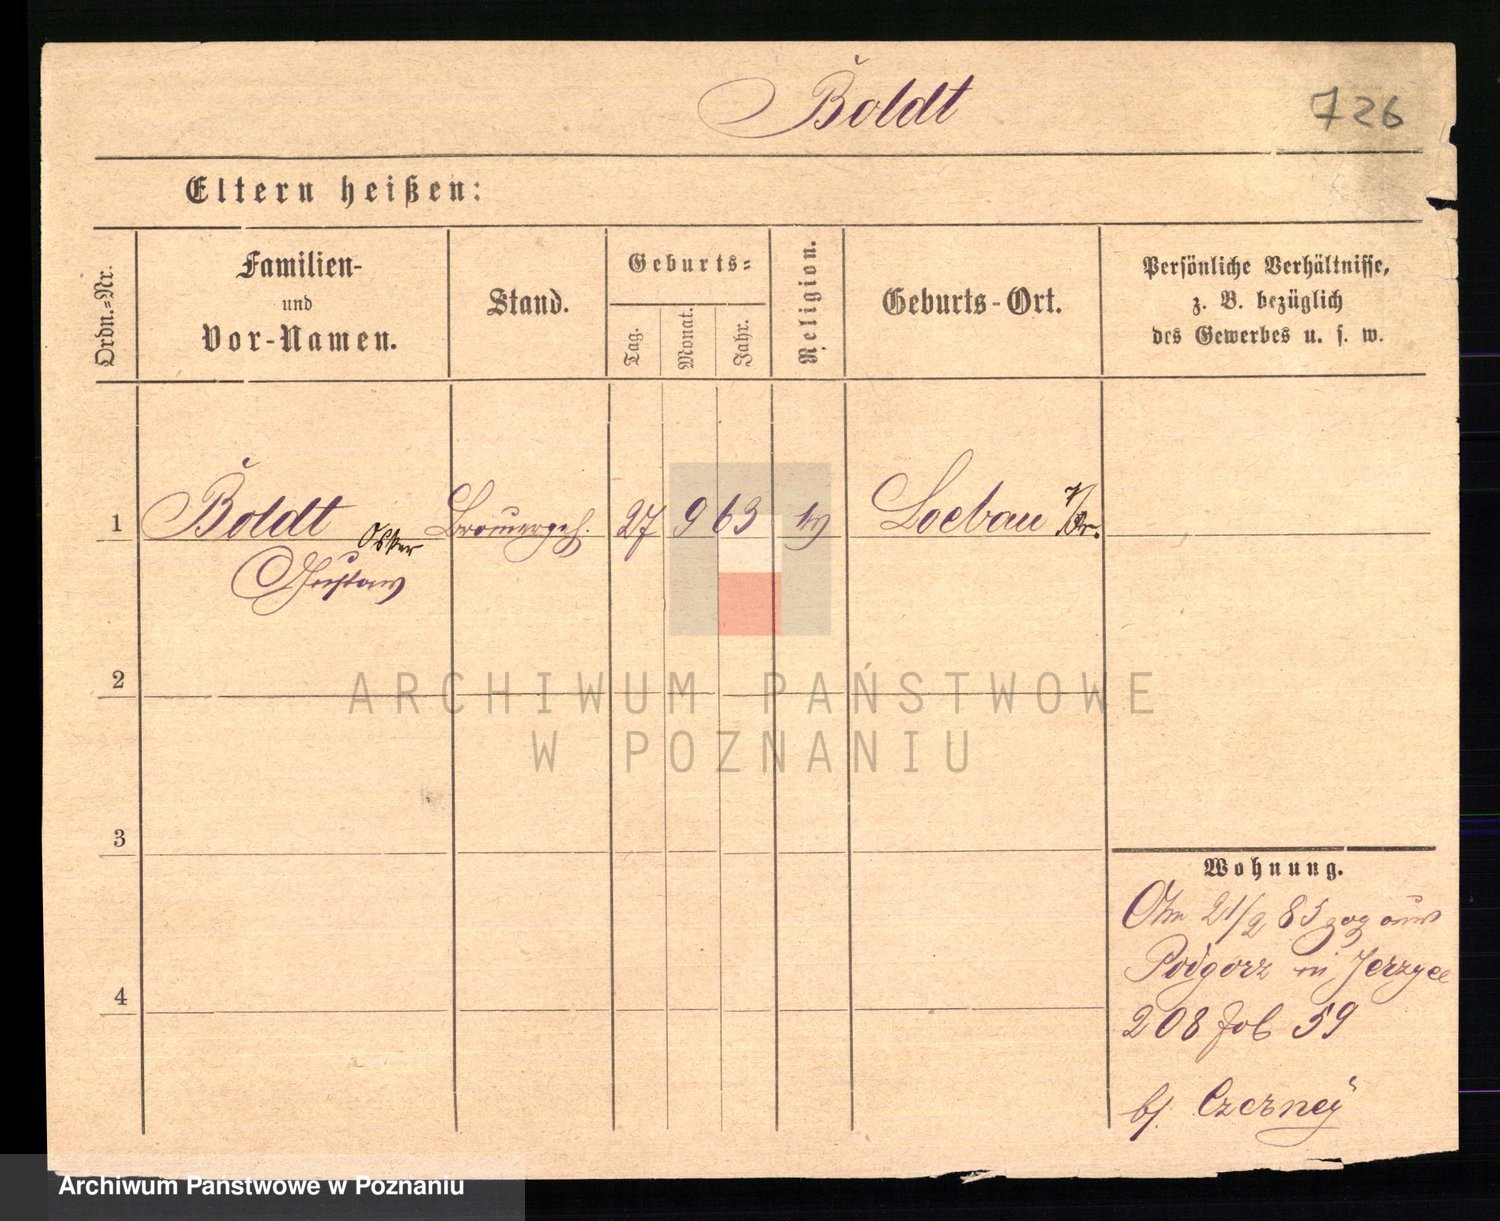 Boldt
726
Eltern heißen:
Ordn.-Nr.
Familien-
und
Vor-Namen.
Stand.
Geburts-
Tag.
Monat.
Jahr.
Religion.
Geburts-Ort.
Persönliche Verhältnisse,
z. B. bezüglich
des Gewerbes u. s. w.
1
Boldt
Oskar
Gustav
Brauergeh.
27
9
63
Loebau
2
ARCHIWUM PAŃSTWOWE
W POZNANIU
3
Wohnung.
21/2 85 zog aus
Podgorz in
4
208 fol 59
bf. Czerney
Archiwum Państwowe w Poznaniu